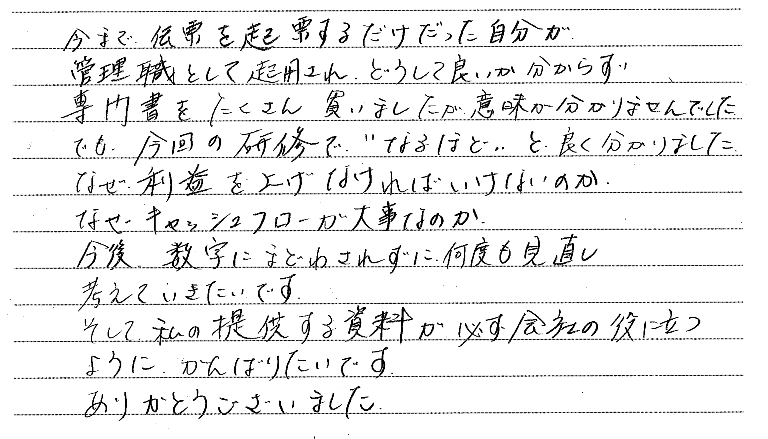 今まで、伝票を起票するだけだった自分が
管理職として起用され、どうして良いか分からず
専門書をたくさん買いましたが、意味が分かりませんでした
でも、今回の研修で、"なるほど"と良く分かりました
なぜ、利益を上げなければいけないのか、
なぜ、キャッシュフローが大事なのか、
今後、数字にまどわされずに、何度も見直し
考えていきたいです。
そして私の提供する資料が必ず会社の役に立つ
ように、がんばりたいです。
ありがとうございました。